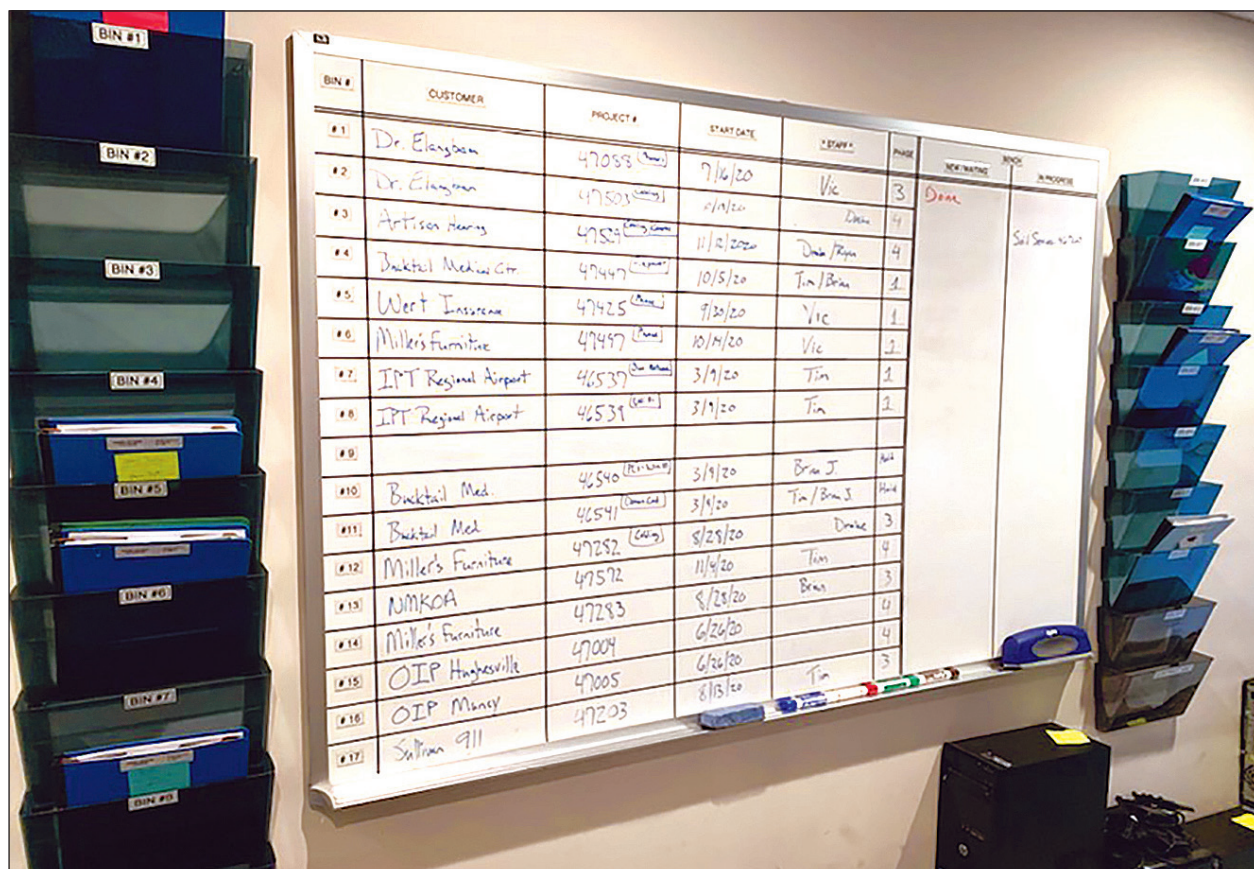 BIN #1
BIN #2
BIN #3
BIN #4
BIN #5
BIN #6
BIN #7
BIN #8
BIN # CUSTOMER PROJECT # START DATE * STAFF * PHASE BENCH
NEW / WAITING IN PROGRESS
#1 Dr. Elangbam 47088 (Phones) 7/16/20 Vic 3 Done
#2 Dr. Elangbam 47503 (Cabling) 10/19/20 Drake 4
#3 Artisan Hearing 47529 11/12/2020 Drake/Ryan 4
#4 Bucktail Medical Ctr. 47447 10/5/20 Tim/Brian 1
#5 Wert Insurance 47425 (Phones) 9/30/20 Vic 1
#6 Miller's Furniture 47497 (Phones) 10/14/20 Vic 1
#7 IPT Regional Airport 46537 3/9/20 Tim 1
#8 IPT Regional Airport 46539 3/9/20 Tim 1
#9
#10 Bucktail Med. 46540 3/9/20 Brian J. Hold
#11 Bucktail Med. 46541 3/9/20 Tim / Brian J. Hold
#12 Miller's Furniture 47282 (Cabling) 8/28/20 Drake 3
#13 NMKOA 47572 11/4/20 Tim 4
#14 Miller's Furniture 47283 8/28/20 Brian 3
#15 OIP Hughesville 47004 6/26/20 4
#16 OIP Muncy 47005 6/26/20 4
#17 Sullivan 911 47203 8/13/20 Tim 3